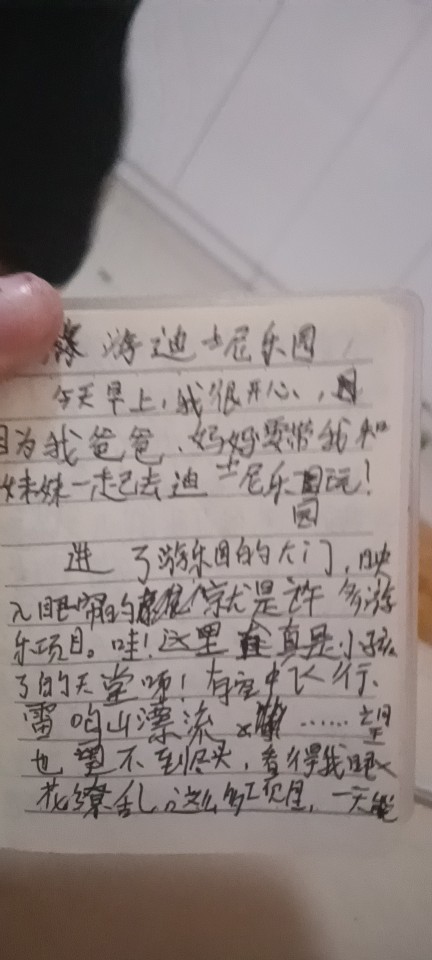 游迪士尼乐园
今天早上，我很开心，因
因为我爸爸、妈妈要带我和
妹妹一起去迪士尼乐园玩！
园
进了游乐园的大门，映
入眼帘的就是许多游
乐项目。哇！这里真是小孩
子的天堂呀！有空中飞行、
雷鸣山漂流……望
也望不到尽头，看得我眼
花缭乱，这么多项目，一天能